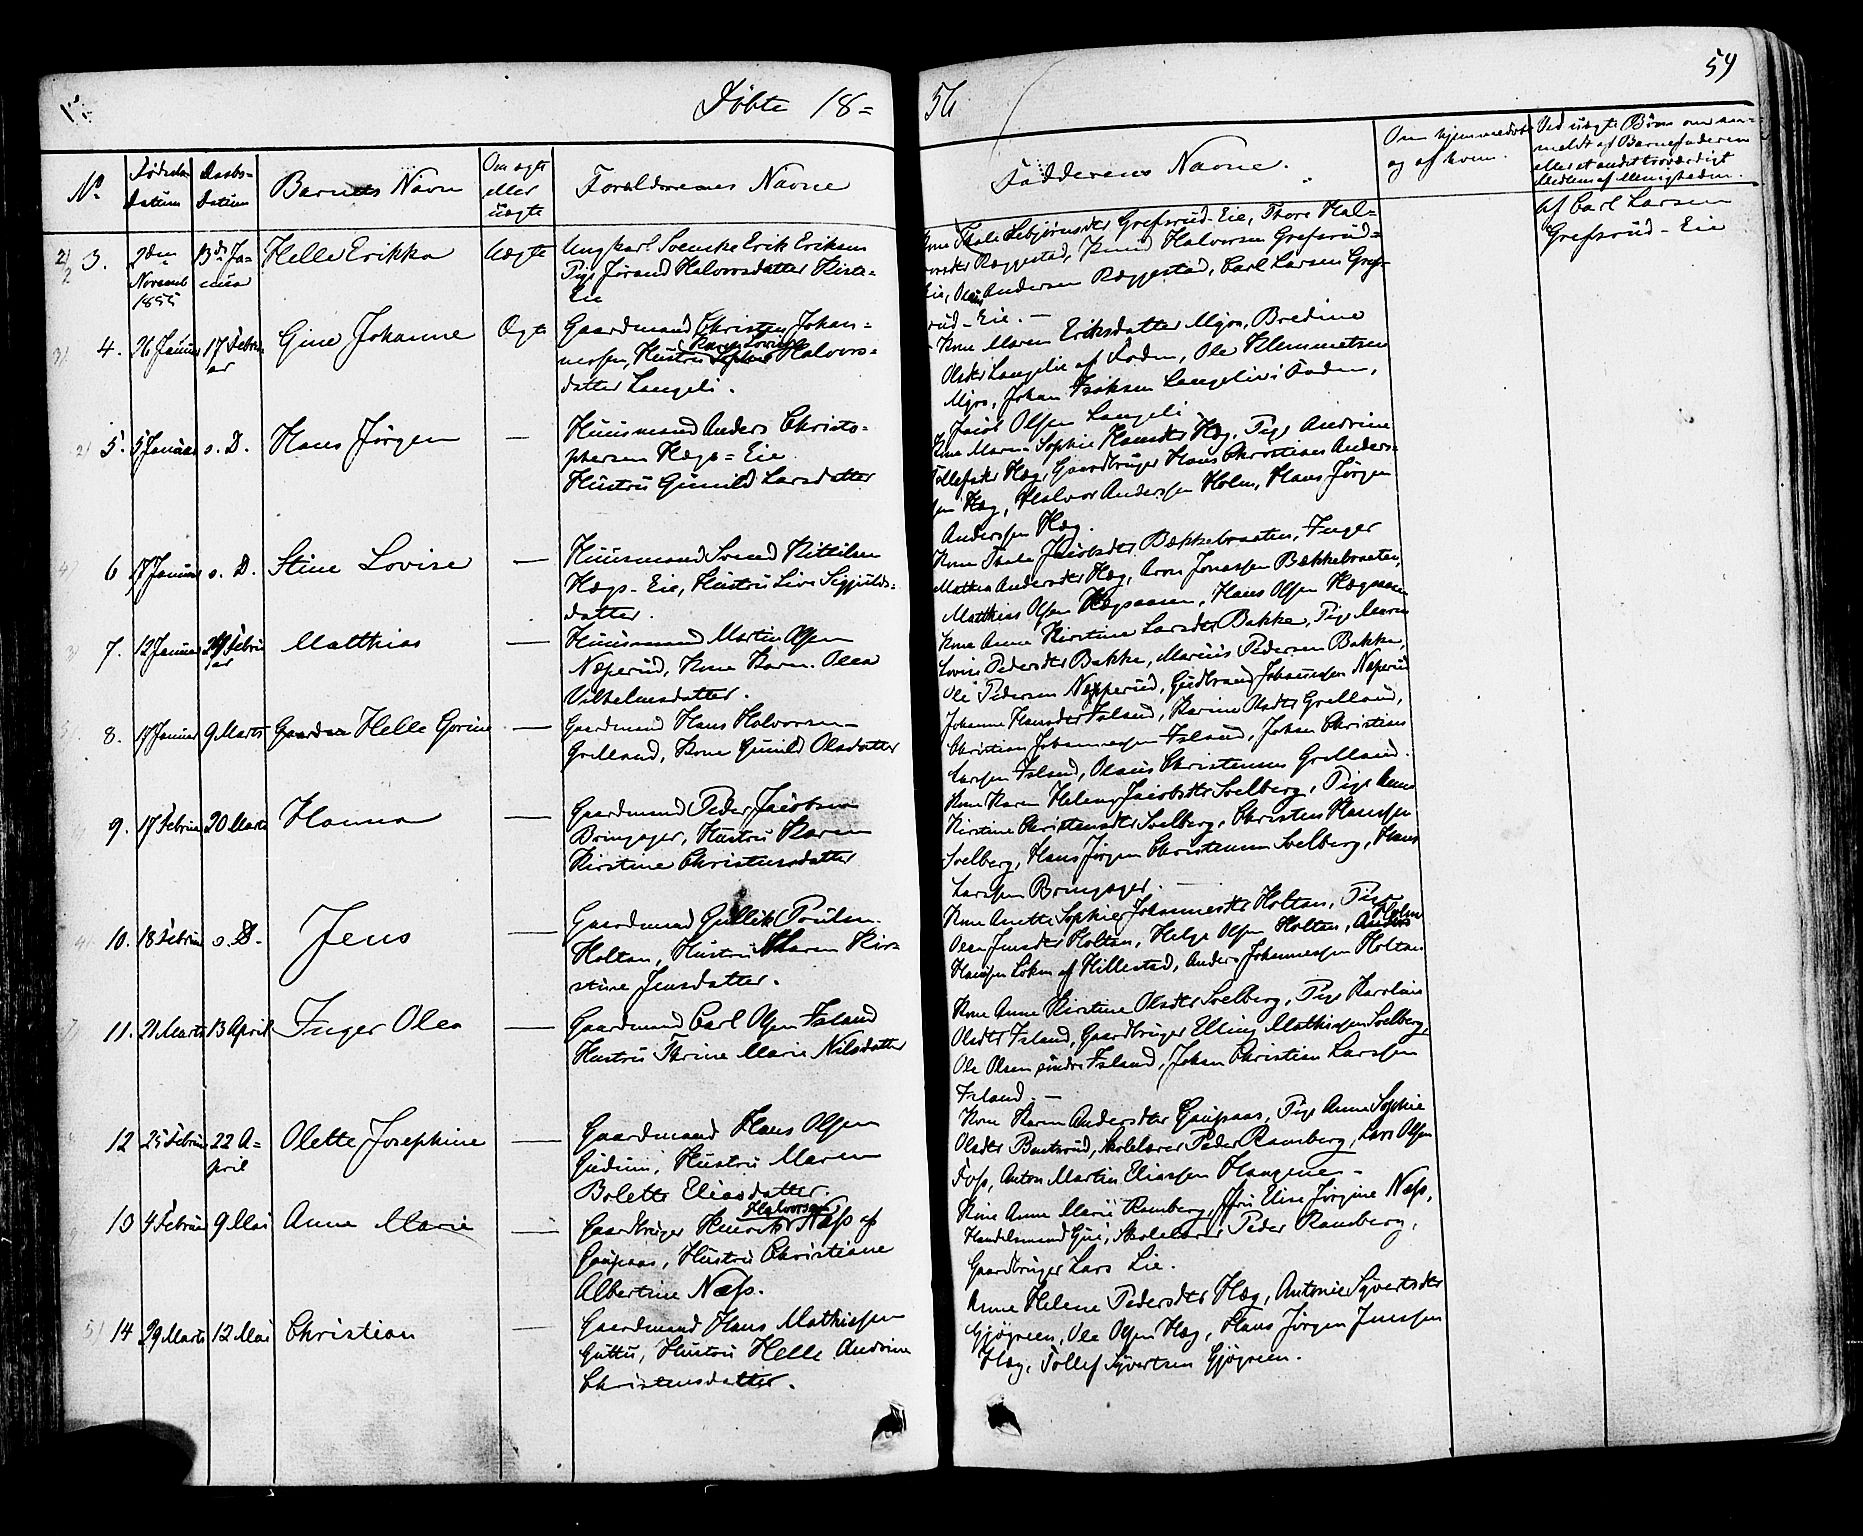 Døbte 18=
56
59
No
Fødsels
Datum
Daabs-
Datum
Barnets Navn
Om ægte
eller
uægte
Forældrenes Navne
Faddernes Navne.
Om hjemmedøbt
og af hvem.
Ved uægte Børn om an-
meldt af Barnefaderen
eller et andet troværdigt
Medlem af Menigheden.
3.
2den
Novemb
1855
13de Ja-
nuar
Helle Erikka
Uægte
Ungkarl Svenske Erik Eriksen
Pige Jørand Halvorsdatter
Eie
Kone Thale Esbjørnsdtr Grefsrud-Eie, Thore Hal=
vorsdtrRæggestad, Knud Halvorsen Grefsrud=
Eie, Andersen Ræggestad, Carl Larsen Gref-
rud-Eie.
af Carl Larsen
Grefsrud-Eie
4.
26 Januar
17 Febru
ar
Gine Johanne
Ægte
Gaardmand Christen Johan=
nessen, Hustru Karen Lovise Halvors=
datter Langeli.
Kone Maren Eriksdatter Myos, Bredine
Olsdtr Langelie af Foden, Ole Klemmetsen
Myos, Johan Isaksen Langelie i Foden,
Jacob Olsen Langeli
5.
5 Januar
s. D.
Hans Jørgen
—
Huusmand Anders Christo-
phersen Hægs=Eie
Hustru Gunild Larsdatter
Kone Maren Sophie Hansdtr Hæg, Pige Andrine
Tollefsdtr Hæg, Gaardbruger Hans Christian Anders-
sen Hæg, Halvor Anderssen Holm, Hans Jørgen
Anderssen Hæg.
6
17 Januar
s. D.
Stine Lovise
—
Huusmand Svend Kittilsen
Hægs-Eie, Hustru Live
datter.
Kone Thale Jacobsdtr Bækkebraaten, Inger
Mathea Andersdtr Hæg, Aron Jonassen Bækkebraaten,
Matthias Olsen Hægsaasen, Hans Olsen Hægsaasen
7.
12 Januar
24 Febru
ar
Matthias
—
Huusmand Martin Olsen
Næperud, Kone Karen Olea
Vilhelmsdatter.
Kone Anne Kirstine Larsdtr Bakke, Pige Maren
Lovise Pedersdtr Bakke, Marius Pedersen Bakke,
Ole Pedersen Næpperud, Gudbrand Johannesen Næperud
8.
17 Januar
9 Marts
Helle Gorine
—
Gaardmand Hans Halvorsen
Grelland, Kone Gunild Olsdatter
Johanne Hansdtr Island, Karine Olsdtr Grelland,
Christian Johannessen Island, Johan Christian
Larssen Island, Olaus Christensen Grelland.
9.
17 Februar
20 Marts
Hanna
—
Gaardmand Peder Jacobsen
Bringager, Hustru Karen
Kirstine Christensdatter
Kone Karen Helene Jacobsdtr Solberg, Pige Anne
Kirstine Christensdtr Solberg, Christen Hanssen
Solberg, Hans Jørgen Christensen Solberg, Hans
Larssen Bringager.
10.
18 Februar
s. D.
Jens
—
Gaardmand Gullik Poulsen
Holtan, Hustru Maren Kir=
stine Jensdatter.
Kone Anette Sophie Johannesdtr Holtan, Pige
Olea Jensdtr Holtan, Helge Olsen Holtan,
Hanssen Løken af Hillestad, Anders Johannessen Holtan
11.
21 Marts
13 April
Inger Olea
—
Gaardmand Carl Olsen Island
Hustru Thrine Marie Nilsdatter
Kone Anne Kirstine Olsdtr Solberg, Pige Karoline
Olsdtr Island, Gaardbruger Elling Mathissen Solberg,
Ole Olsen søndre Island, Johan Christian Larssen
Island.
12
25 Februar
22 A=
pril
Olette Josephine
—
Gaardmand Hans Olsen
Gudum, Hustru Maren
Bolette Eliasdatter.
Kone Karen Andersdtr Gaupaas, Pige Anne Sophie
Olsdtr Bentsrud, Skolelærer Peder Ramberg, Lars Olsen
Foss, Anton Martin Eliassen Haugene
13
4 Februar
9 Mai
Anne Marie
—
Halvorsen
Gaardbruger Henrik Næss af
Gaupaas, Hustru Christiane
Albertine Næss.
Kone Anne Marie Ramberg, Fru Elise Jørgine Næss,
Handelsmand Gui, Skolelærer Peder Ramberg,
Gaardbruger Lars Lie.
14
29 Marts
12 Mai
Christian
—
Gaardmand Hans Mathissen
Guttu, Hustru Helle Andrine
Christensdatter.
Anne Helene Pedersdtr Hæg, Antonie Syvertsdtr
Gjøgreen, Ole Olsen Hæg, Hans Jørgen Jenssen
Hæg, Tollef Syvertsen Gjøgreen.